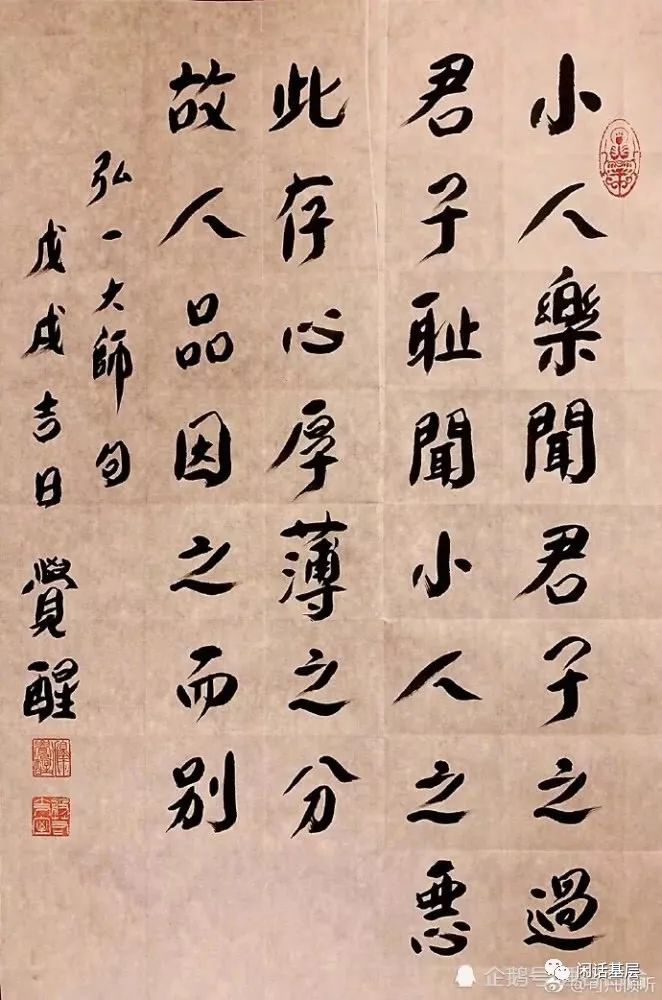 小人樂聞君子之過
君子耻聞小人之惡
此存心厚薄之分
故人品因之而别
弘一大師句
戊戌吉日 覺醒
闲话基层